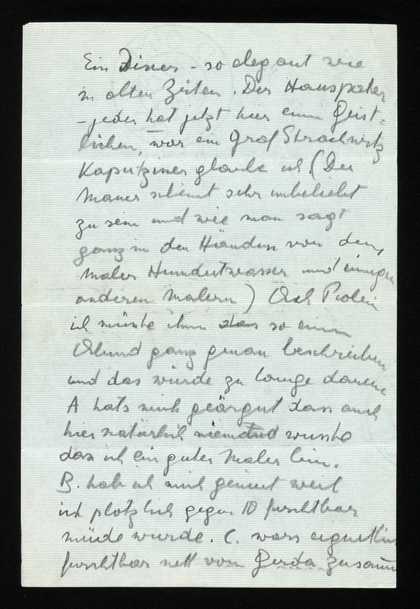 Ein Diner - so elegant wie
in alten Zeiten. Der Hauspater
- jeder hat jetzt hier einen Geist-
lichen, war ein Graf Strachwitz
Kapuziner glaube ich (Der
Mauer scheint sehr unbeliebt
zu sein und wie man sagt
ganz in den Händen von dem
Maler Hundertwasser und einigen
anderen Malern) Ach
ich müsste ihm so einen
Abend ganz genau beschreiben
und das würde zu lange dauern
A hats mich geärgert dass auch
hier natürlich niemand wusste
dass ich ein guter Maler bin.
B. hab ich mich geniert weil
ich plötzlich gegen 10 furchtbar
müde wurde. C. wars eigentlich
furchtbar nett von Gerda